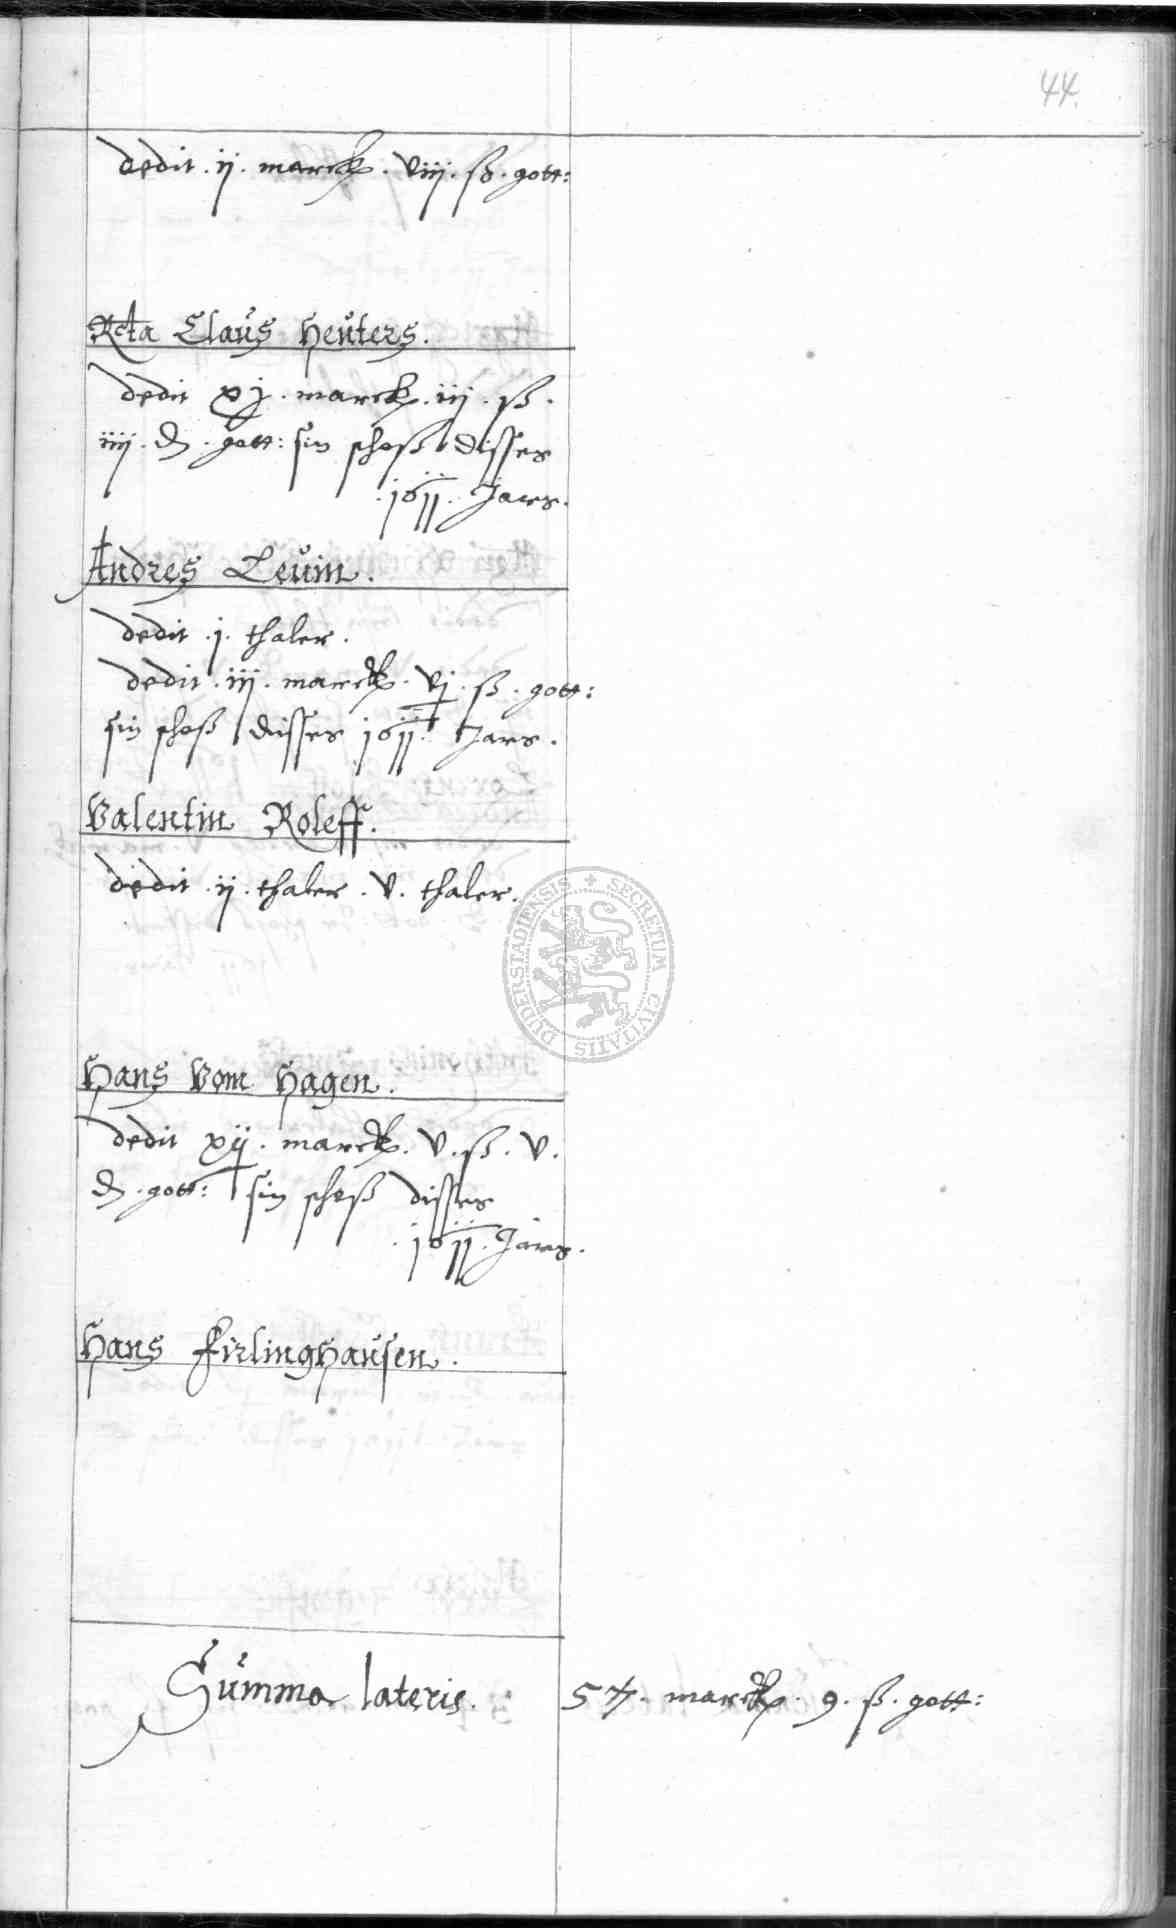 44.
dedit . ij . marck . viij . ß . gott:
Reta Claus Heuters.
dedit xj . marck . iij . ß .
iiij . ₰ . gott: sin schoß disses
. 1611 . Jars .
Andres Leuin .
dedit . j . thaler .
dedit . iij . marck . vj . ß . gott:
sin schoß disses 1611 . Jars .
Valentin Roleff .
dedit . ij . thaler . v . thaler .
SECRETUM CIVITATIS DUDERSTADIENSIS
Hans Vom Hagen .
dedit xij . marck . v . ß . v .
₰ . gott: sin schoß disses
. 1611 . Jars .
Hans Firlinghausen .
Summa lateris . 54 . marck . 9 . ß . gott: